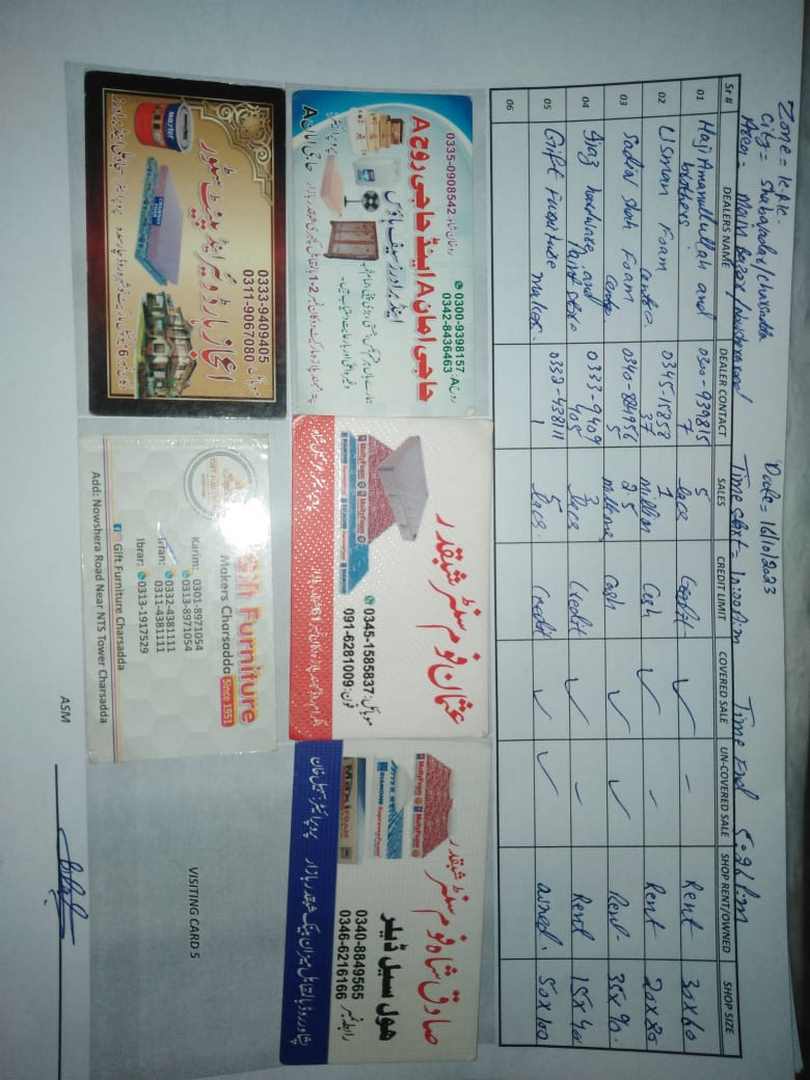 Zone = K.P.K.
City = Shabqadar/Charsadda
Date = 16/10/2023
Area = Main Bazar/Nowshera road
Time start = 10:00 A.m
Time End 5:
Sr # DEALERS NAME DEALER CONTACT SALES CREDIT LIMIT COVERED SALE UN-COVERED SALE SHOP RENT/OWNED SHOP SIZE
01 Haji Amanullullah and brothers 0300-9398157 5 lacs Credit ✓ - Rent 30x60
02 Usman Foam Centre 0345-1585837 1 million Cash ✓ - Rent 20x80
03 Sadiq Shah Foam Centre 0340-8849565 2.5 million Cash ✓ ✓ Rent 35x90.
04 Ijaz hardware and Paint Store 0333-9409405 3 lacs Credit ✓ - Rent 15x40
05 Gift Furniture makers. 0332-4381111 5 lacs. Credit ✓ ✓ owned. 50x100
06
0335-0908542
0300-9398157
0342-8436463
حاجی امان A اینڈ حاجی روح A
اینڈ برادرز سیف ہاؤس
عثمان فوم سنٹر شبقدر
MoltyFoam
موبائل: 0345-1585837
فون: 091-6281009
صادق شاہ فوم سنٹر شبقدر
MoltyFoam
DIAMOND Supreme Foam
ہول سیل ڈیلر
0340-8849565
0346-6216166
رابطہ نمبر
0333-9409405
0311-9067080
اعجاز ہارڈوئیر اینڈ پینٹ سٹور
Gift Furniture
Makers Charsadda Since 1951
Karim: 0301-8971054
0313-8971054
Irfan: 0332-4381111
0311-4381111
Ibrar: 0313-1917529
Gift Furniture Charsadda
Add: Nowshera Road Near NTS Tower Charsadda
VISITING CARD 5
ASM